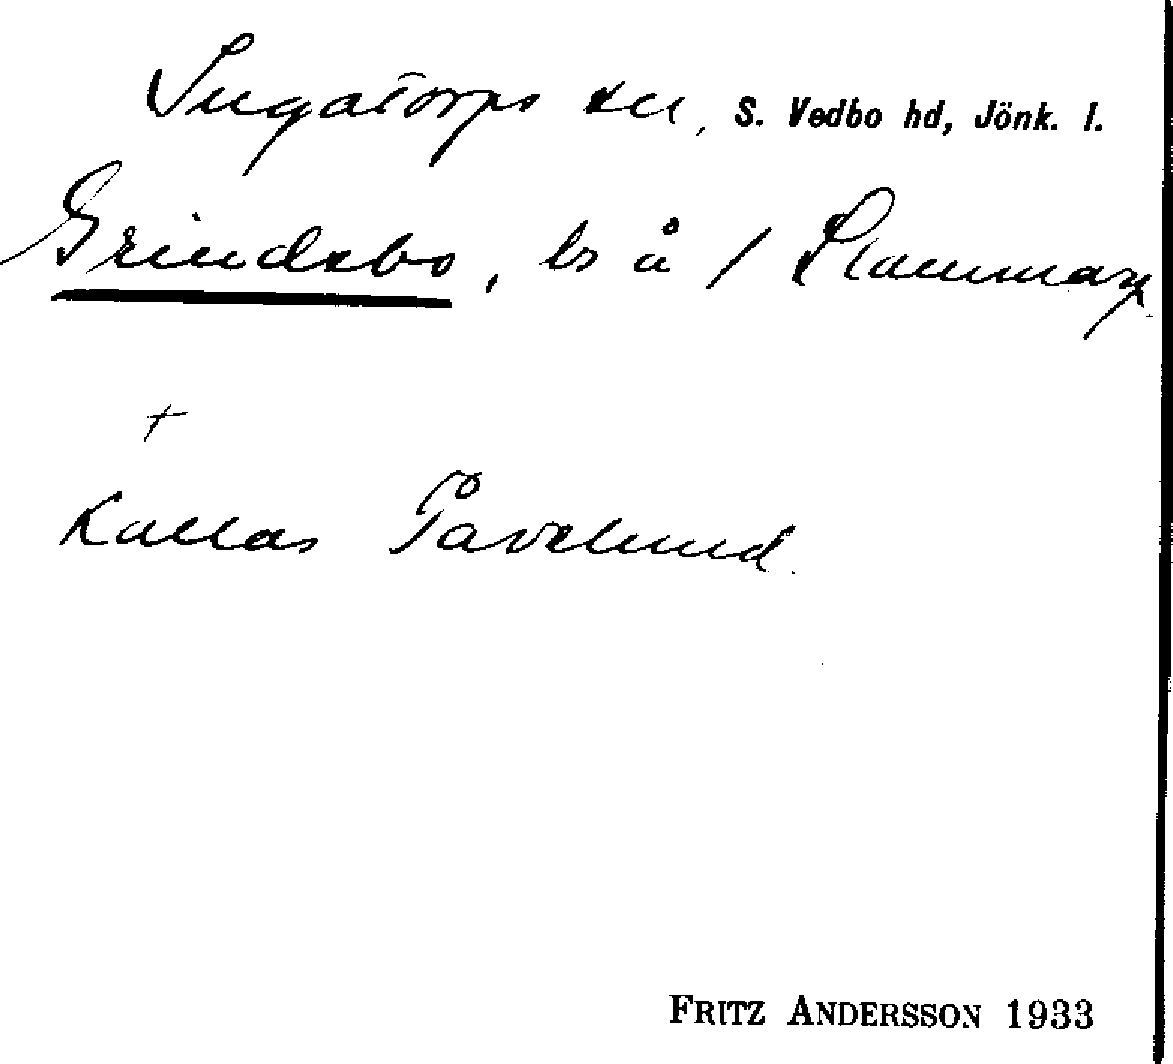 Ingatorps sn, S. Vedbo hd, Jönk. l.
Grindsbo, bs å / Stammarp
+
Kallas Påvelund.
FRITZ ANDERSSON 1933